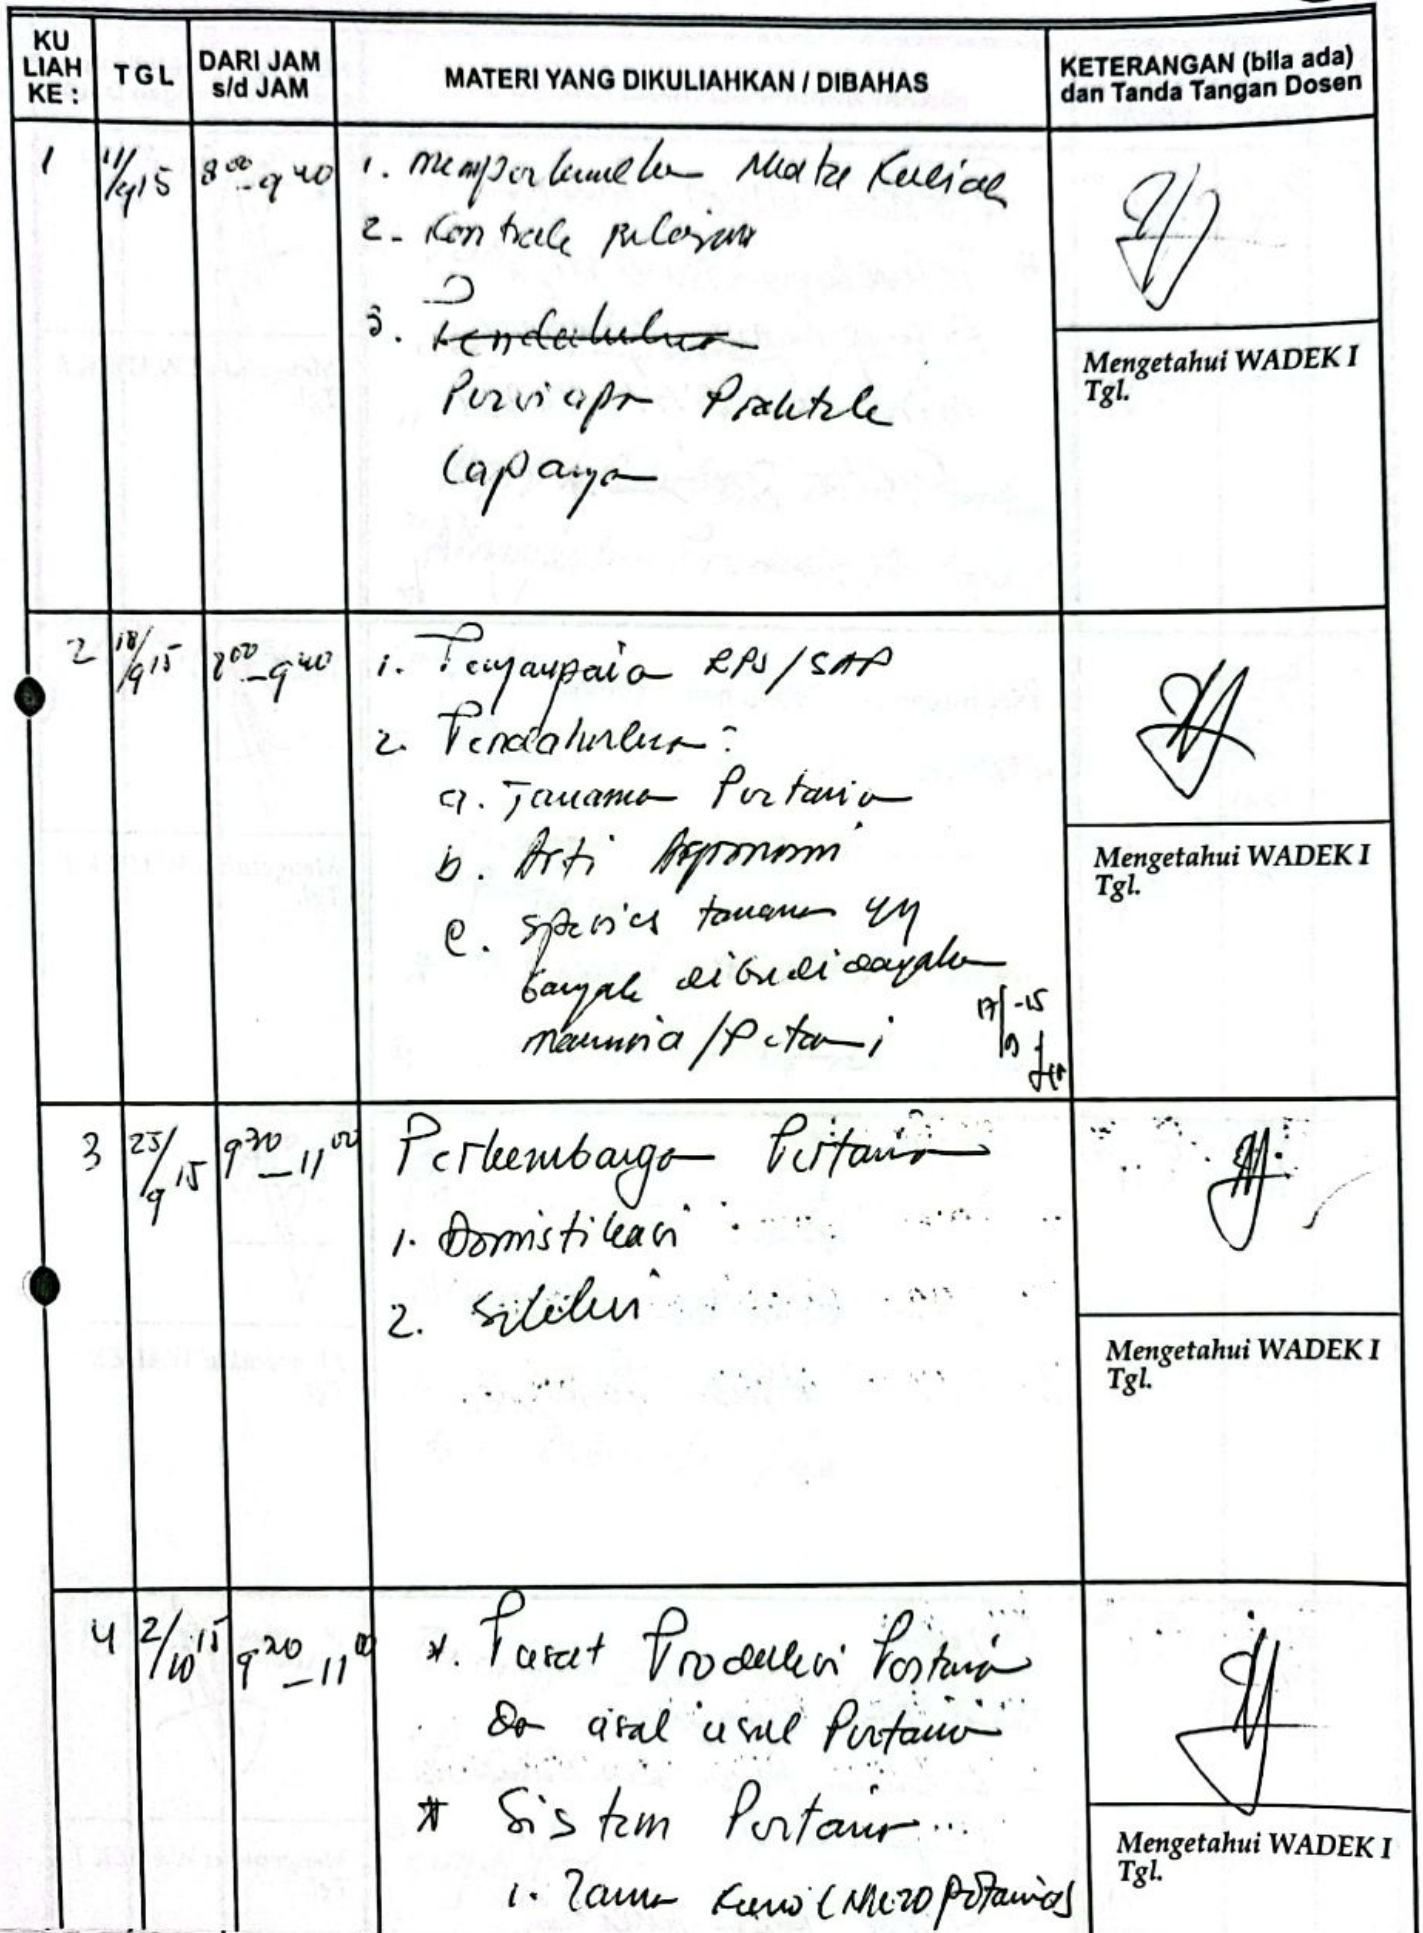 KU LIAH KE : TGL DARI JAM s/d JAM MATERI YANG DIKULIAHKAN / DIBAHAS KETERANGAN (bila ada) dan Tanda Tangan Dosen
1 11/9 15 8 00 - 9 40 1. Memperkenalkan Mata Kuliah
2. Kontrak pelajaran
3. Pendahuluan
Persiapan Praktek
Lapangan
Mengetahui WADEK I
Tgl.
2 18/9 15 8 00 - 9 40 1. Penyampaian RPS/SAP
2. Pendahuluan :
a. Tanaman Pertanian
b. Arti Agronomi
c. Spesies tanaman yg
banyak dibudidayakan
manusia/Petani
17/9 -15
Mengetahui WADEK I
Tgl.
3 25/9 15 9 30 - 11 00 Perkembangan Pertanian
1. Domistikasi
2. Seleksi
Mengetahui WADEK I
Tgl.
4 2/10 15 9 20 - 11 00 *. Pusat Produksi Pertanian
Dan asal usul Pertanian
* Sistem Pertanian
1. Zaman Kuno (Mesopotamia)
Mengetahui WADEK I
Tgl.